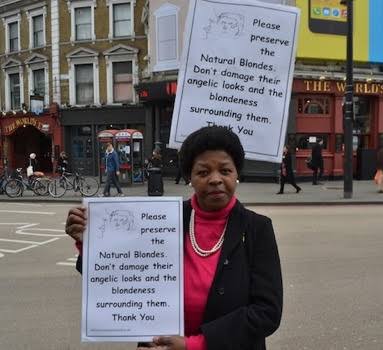 Please
preserve
the
Natural Blondes.
Don't damage their
angelic looks and the
blondeness
surrounding them.
Thank You
THE WORLD'S
Please
preserve
the
Natural Blondes.
Don't damage their
angelic looks and
the blondeness
surrounding them.
Thank You